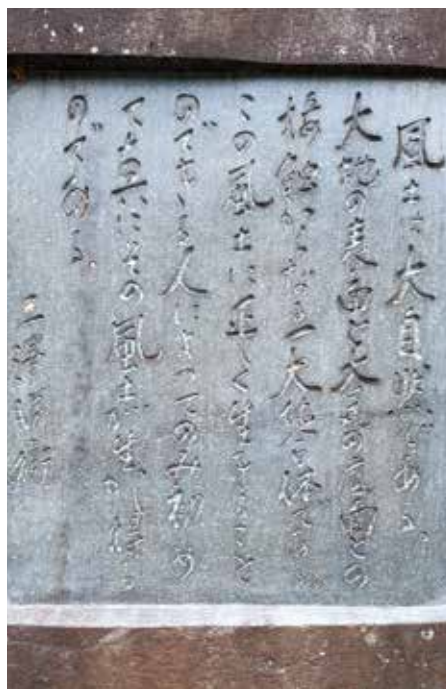 風土は大自然である。
大地の表面と大気の底面との
接触からなる一大
この風土に正しく生きること
のできる人によってのみ初め
て真にその風土が生かし得る
のである。
三澤勝衛